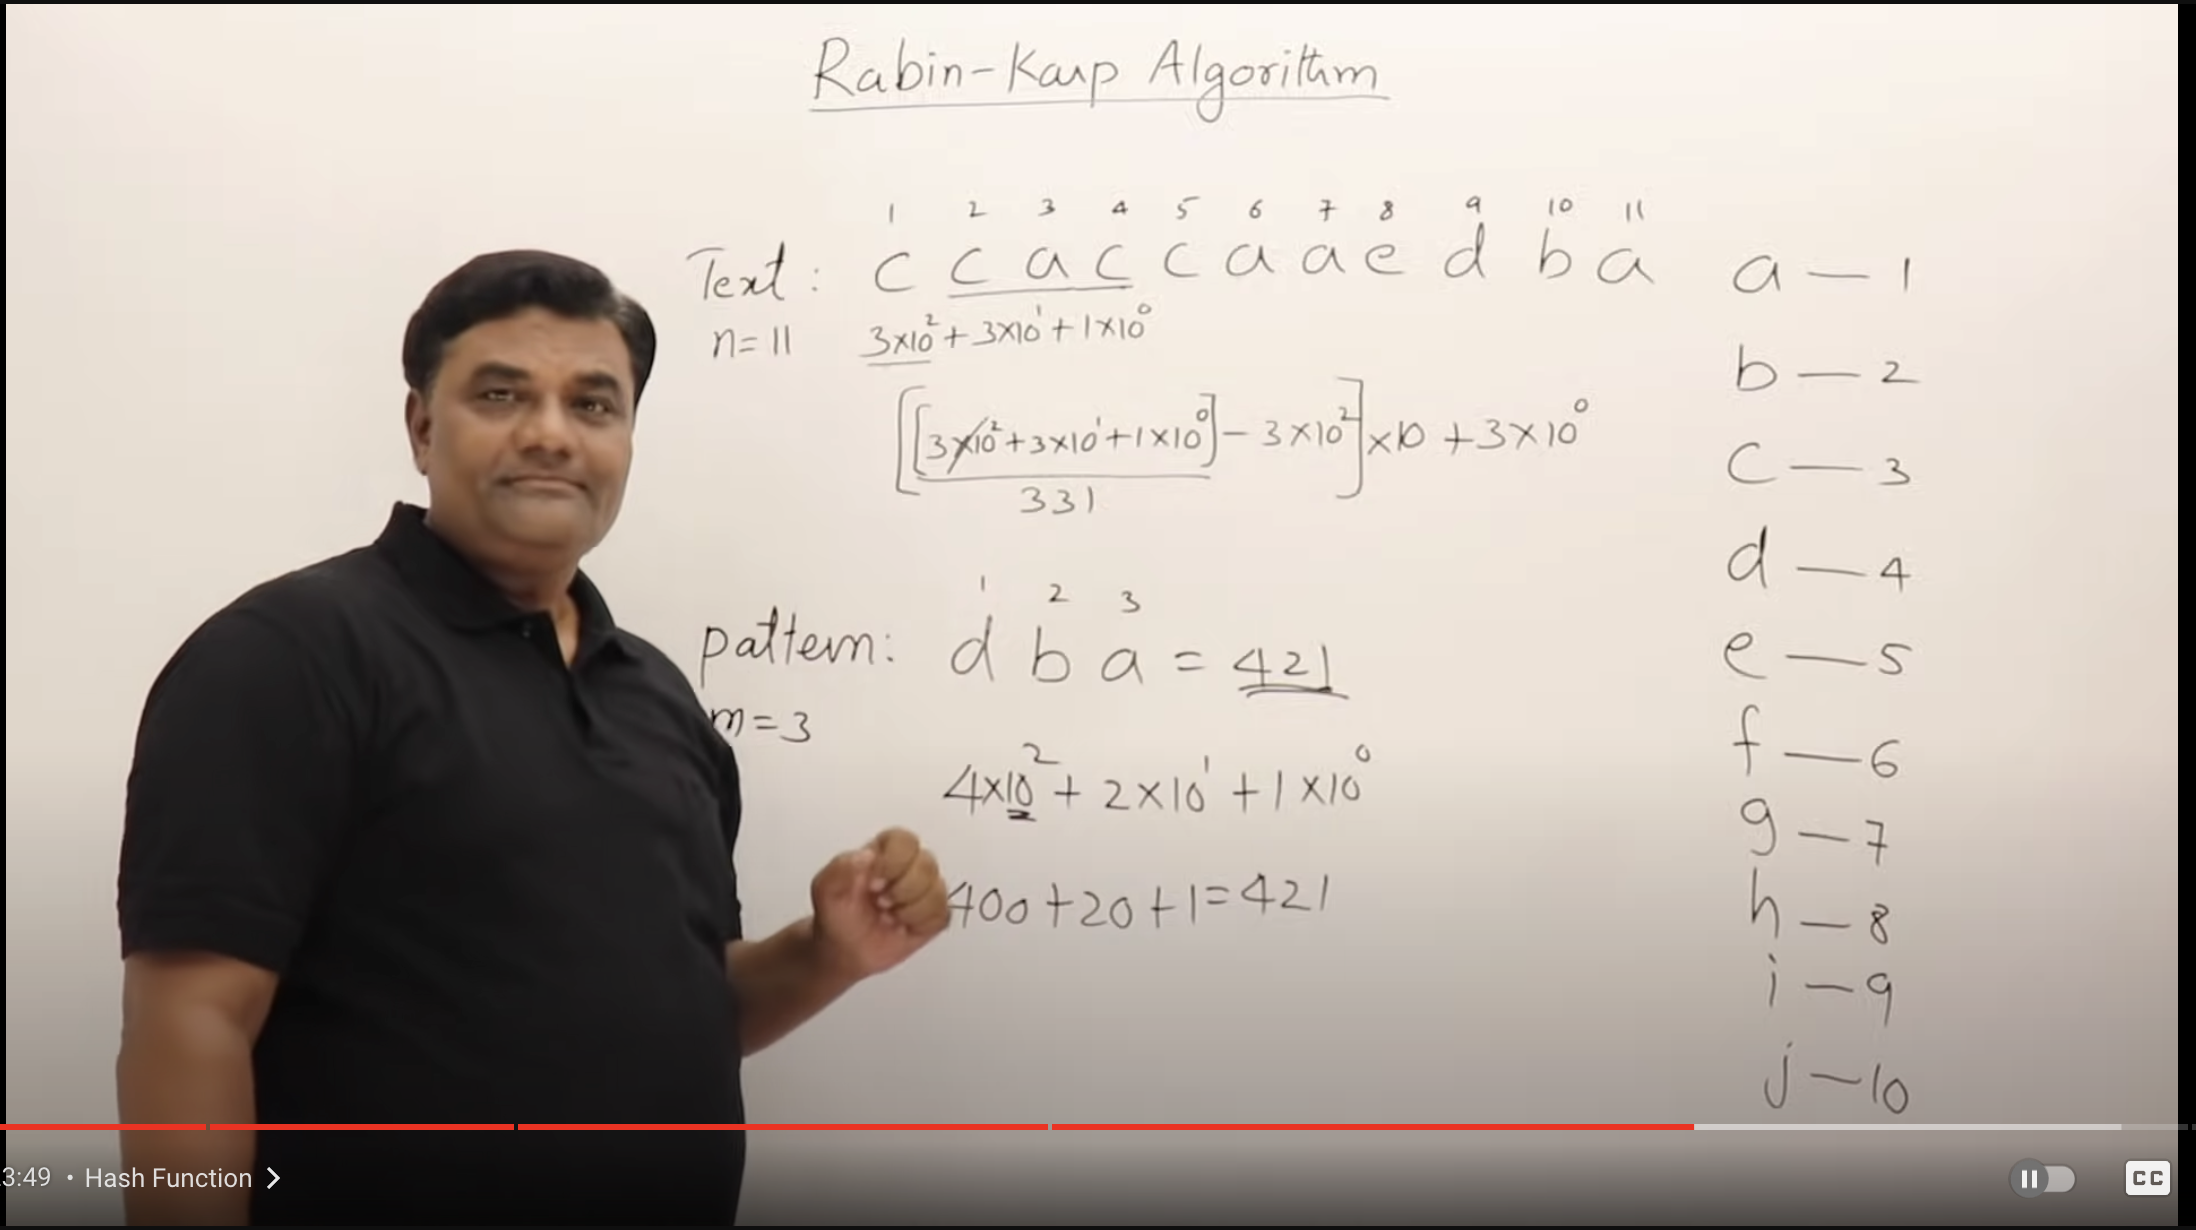 Rabin-Karp Algorithm
1 2 3 4 5 6 7 8 9 10 11
Text: c c a c c a a e d b a
n=11 3×10² + 3×10¹ + 1×10⁰
[[3×10²+3×10¹+1×10⁰] - 3×10²]×10 + 3×10⁰
331
1 2 3
pattern: d b a = 421
m=3
4×10² + 2×10¹ + 1×10⁰
400+20+1=421
a — 1
b — 2
c — 3
d — 4
e — 5
f — 6
g — 7
h — 8
i — 9
j — 10
3:49 • Hash Function >
CC